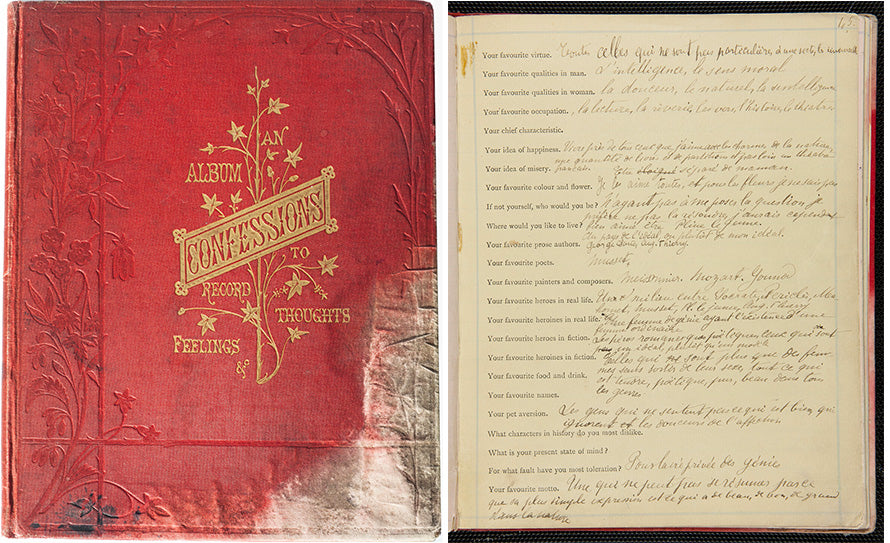 AN
ALBUM
CONFESSIONS
TO
RECORD
THOUGHTS
FEELINGS
&c
Your favourite virtue. Toutes celles qui ne sont pas particulières à une secte, les universelles
Your favourite qualities in man. L'intelligence, le sens moral
Your favourite qualities in woman. la douceur, le naturel, l'intelligence
Your favourite occupation. la lecture, la rêverie, les vers, l'histoire, le théâtre
Your chief characteristic.
Your idea of happiness. Vivre près de tous ceux que j'aime avec les charmes de la nature,
une quantité de livres et de partitions et pas loin un théâtre
français
Your idea of misery. Etre séparé de maman.
Your favourite colour and flower. Je les aime toutes, et pour les fleurs, je ne sais pas
If not yourself, who would you be? N'ayant pas à me poser la question, je
préfère ne pas la résoudre, j'aurais cependant
bien aimé être Pline le jeune.
Where would you like to live? Au pays de l'idéal, ou plutôt de mon idéal.
Your favourite prose authors. George Sand, Aug. Thierry
Your favourite poets. Musset,
Your favourite painters and composers. Meissonnier, Mozart, Gounod
Your favourite heroes in real life. Un milieu entre Socrate, Périclès,
Musset, Pline le jeune, Aug. Thierry
Your favourite heroines in real life. Une femme de génie ayant l'existence d'une
femme ordinaire
Your favourite heroes in fiction. Les héros romanesques poétiques, ceux qui sont
un idéal plutôt qu'un modèle
Your favourite heroines in fiction. Celles qui sont plus que des femmes
sans sortir de leur sexe, tout ce qui
est tendre, poétique, pur, beau dans tous
les genres
Your favourite food and drink.
Your favourite names.
Your pet aversion. Les gens qui ne sentent pas ce qui est bien, qui
ignorent les douceurs de l'affection
What characters in history do you most dislike.
What is your present state of mind?
For what fault have you most toleration? Pour la vie privée des génies
Your favourite motto. Une qui ne peut pas se résumer parce
que sa plus simple expression est ce qui a de beau, de bon, de grand
dans la nature